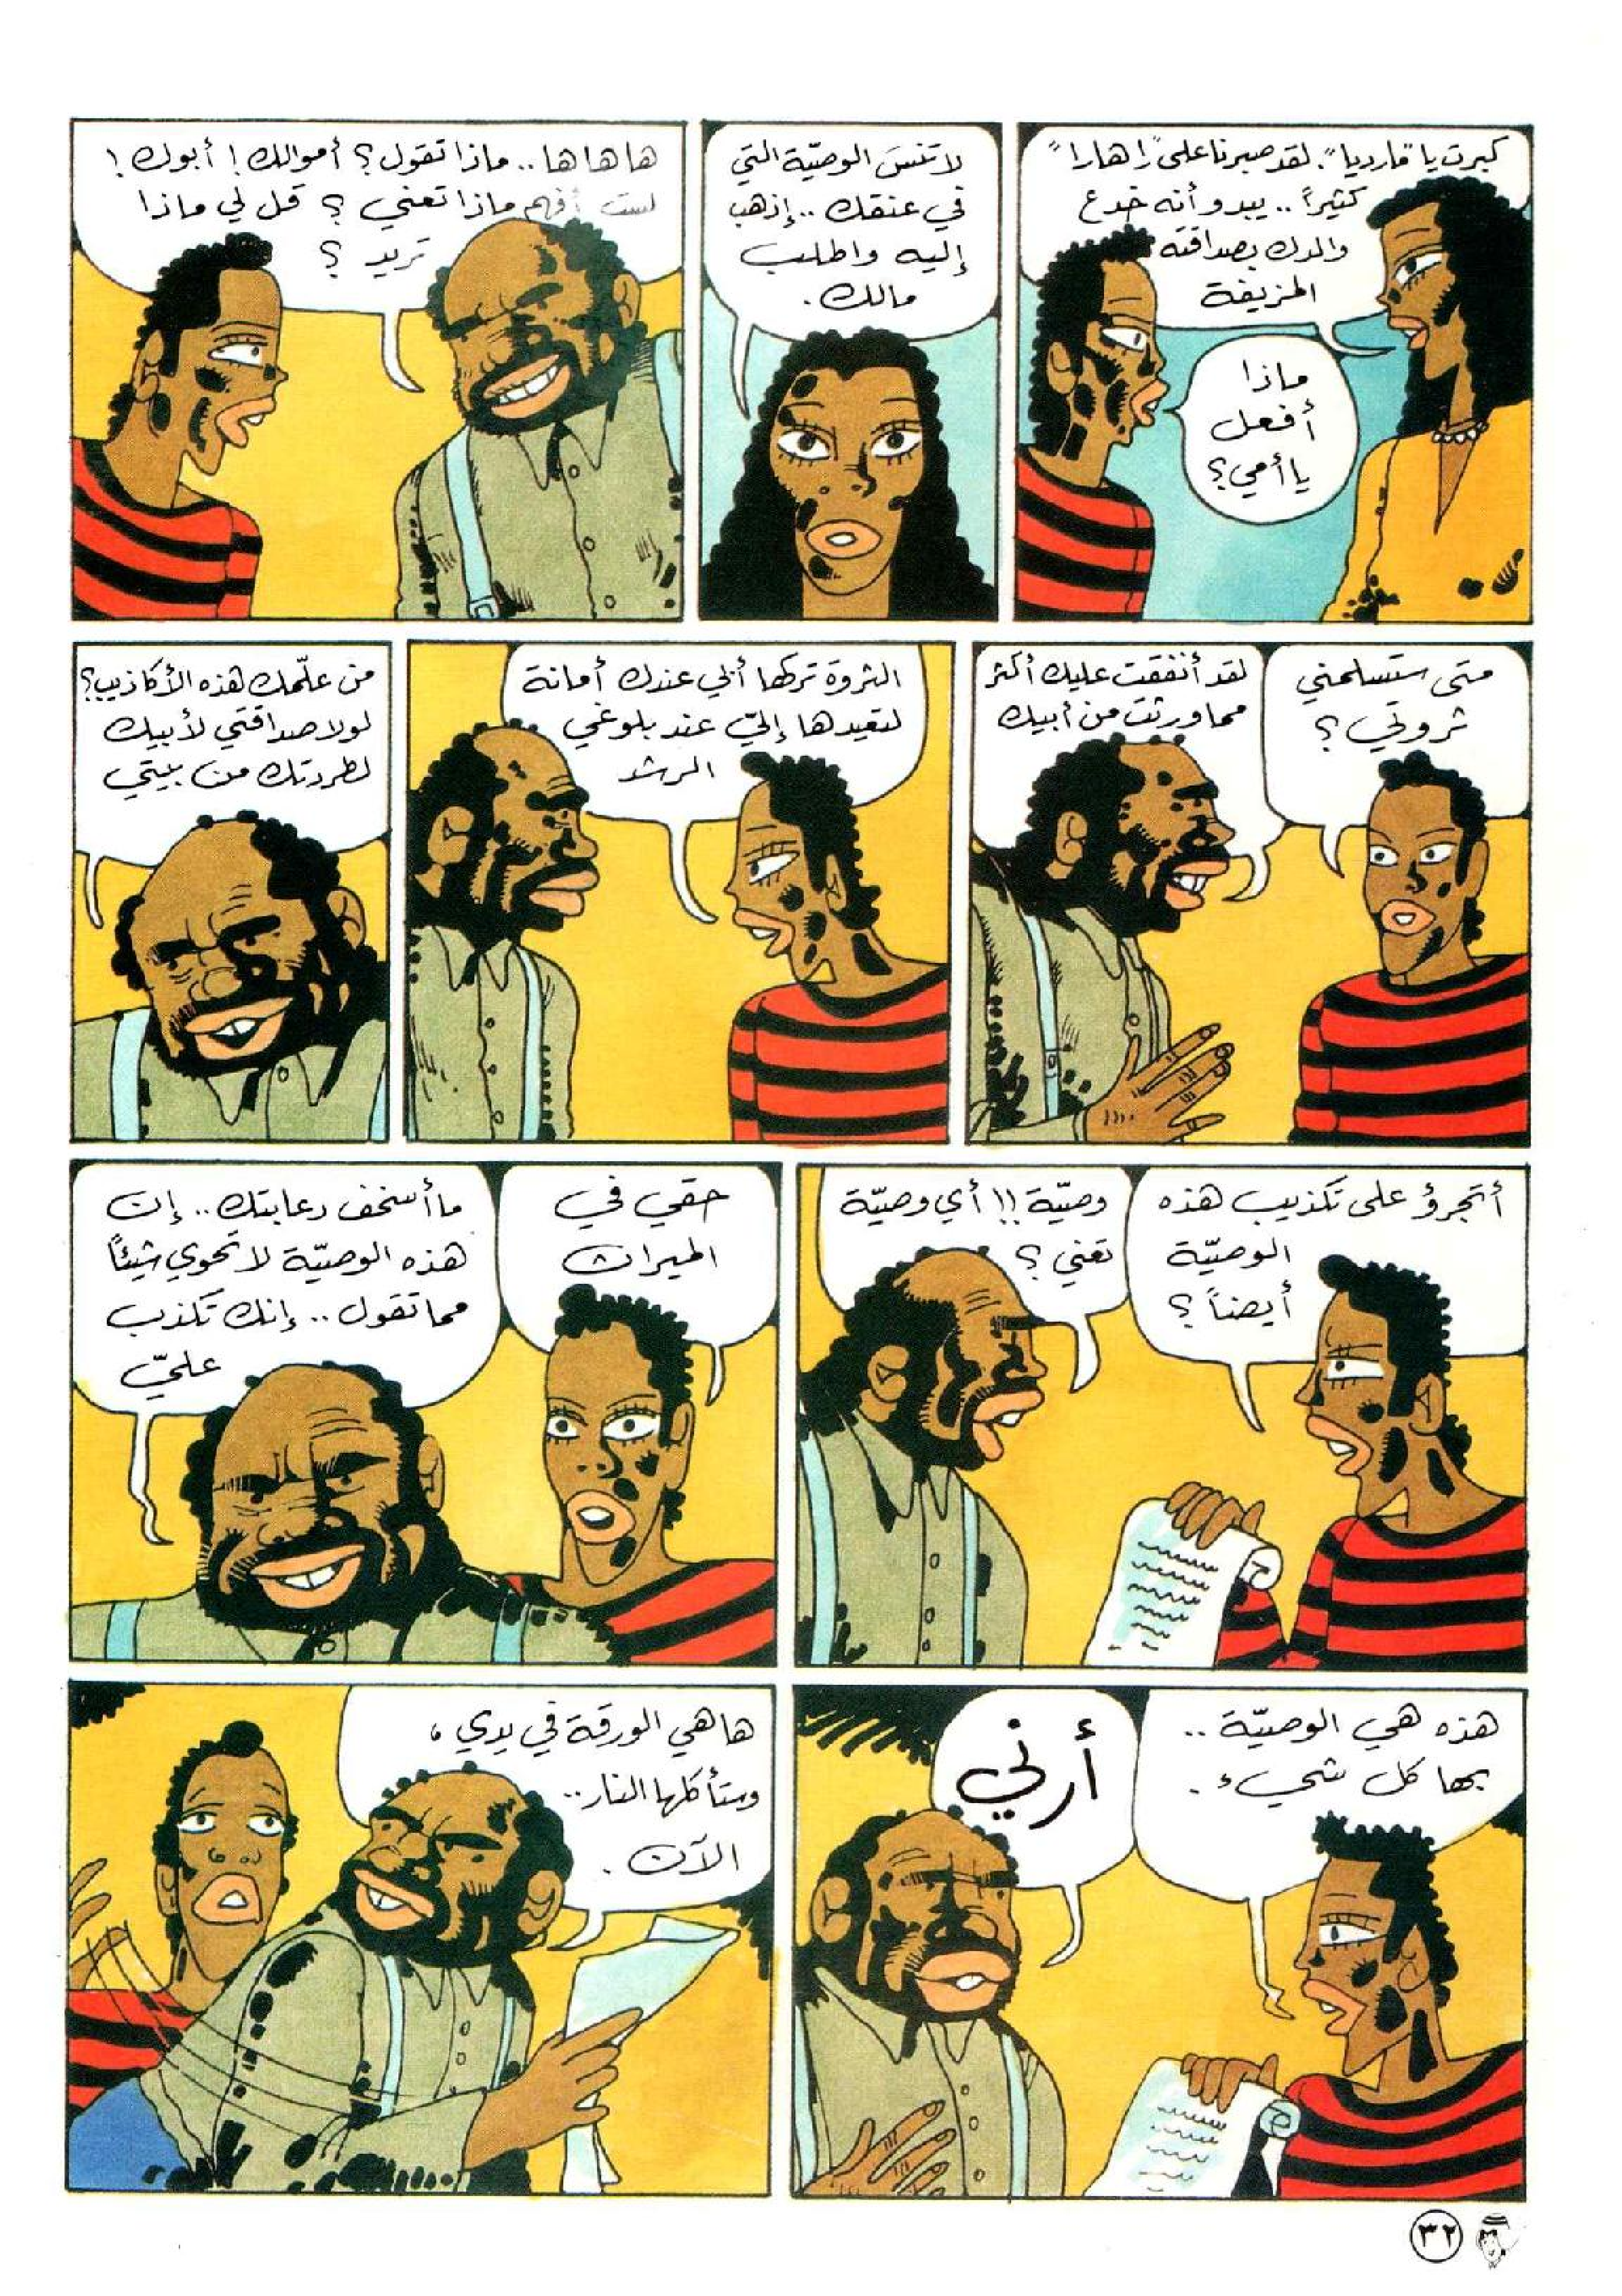 كبرت يا "مارديا". لقد صبرنا على "زاهارا"
كثيراً .. يبدو أنه خدع
والدك بصداقته
المزيفة
ماذا
أفعل
يا أمي؟
لا تنسَ الوصيّة التي
في عنقك .. إذهب
إليه واطلب
مالك .
ها ها ها .. ماذا تقول؟ أموالك! أبوك!
لست أفهم ماذا تعني ؟ قل لي ماذا
تريد ؟
متى ستسلمني
ثروتي ؟
لقد أنفقت عليك أكثر
مما ورثت من أبيك
الثروة تركها أبي عندك أمانة
لتعيدها إليّ عند بلوغي
الرشد
من علّمك هذه الأكاذيب؟
لولا صداقتي لأبيك
لطردتك من بيتي
أتجرؤ على تكذيب هذه
الوصيّة
أيضاً ؟
وصيّة !! أي وصيّة
تعني ؟
حقي في
الميراث
ما أسخف دعابتك .. إن
هذه الوصيّة لا تحوي شيئاً
مما تقول .. إنك تكذب
عليّ
هذه هي الوصيّة ..
بها كل شيء .
أرني
ها هي الورقة في يدي ،
وستأكلها النار ..
الآن .
٣٢